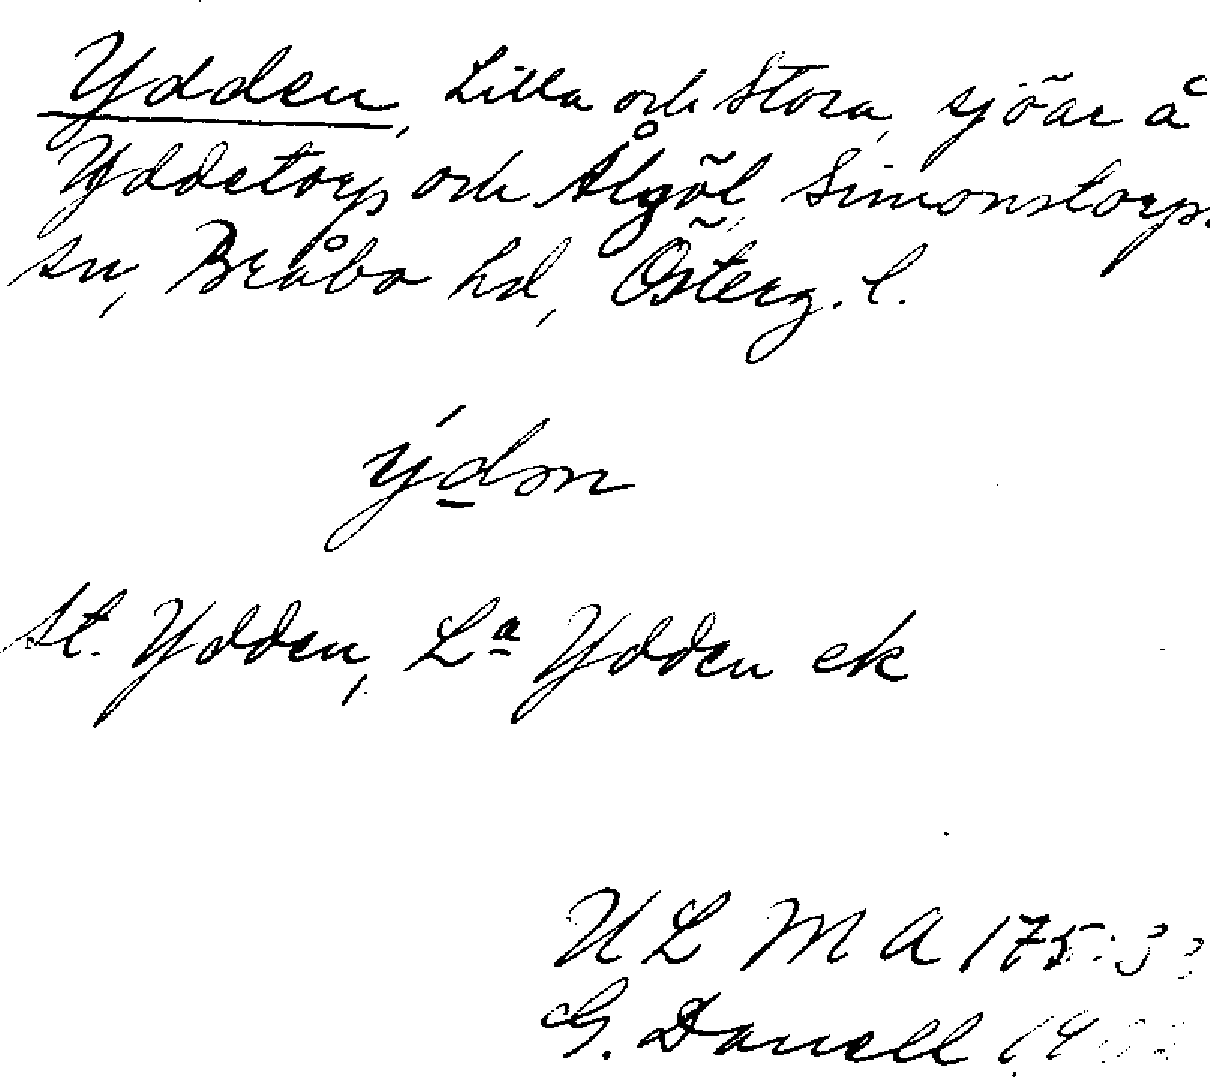 Ydden, Lilla och Stora, sjöar å
Yddetorp och Ålgöl, Simonstorps
sn, Bråbo hd, Österg. l.
ýdɔn
St. Ydden, La Ydden ek
ULMA 175:
G. Danell